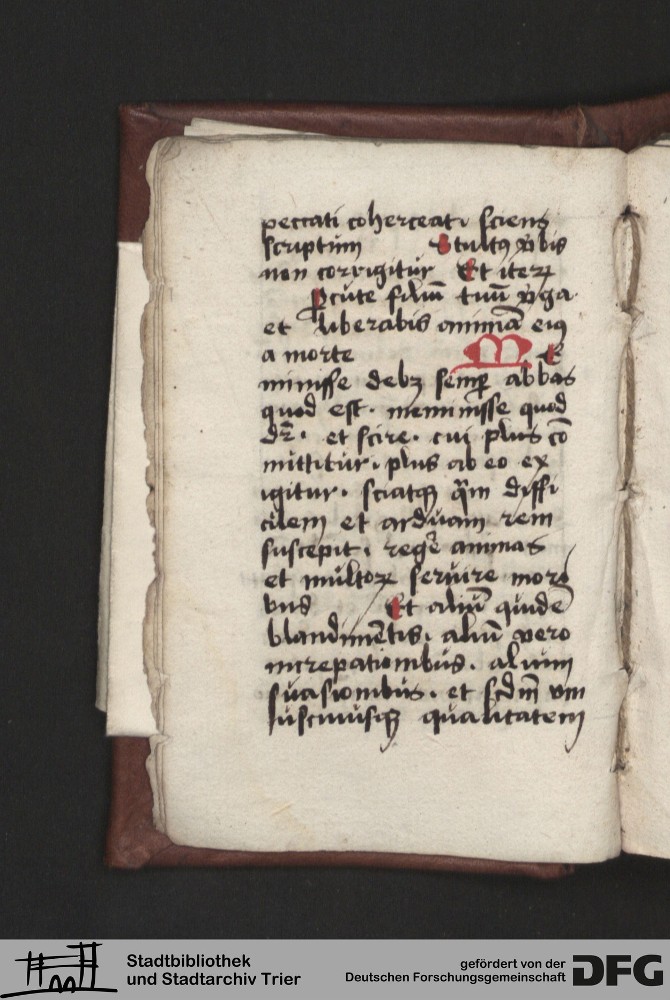 peccati coherceat· sciens
scriptum Stultꝰ v̄bis
non corrigitur Et iteꝝ
ꝑcute filiū tuū v̄ga
et liberabis animā eiꝰ
a morte M e
minisse debꝫ semꝑ abbas
quod est· meminisse quod
dr̄· et scire· cui plus cō
mittitur· plus ab eo ex
igitur· sciatqꝫ q̄m diffi
cilem et arduam rem
suscepit· rege᷑ animas
et multoꝝ seruire mori
bus Et aliū quidē
blandimētis· aliū vero
increpationibus· alium
suasionibus· et scdm̄ vni
uscuiusqꝫ qualitatem
Stadtbibliothek
und Stadtarchiv Trier
gefördert von der
Deutschen Forschungsgemeinschaft
DFG